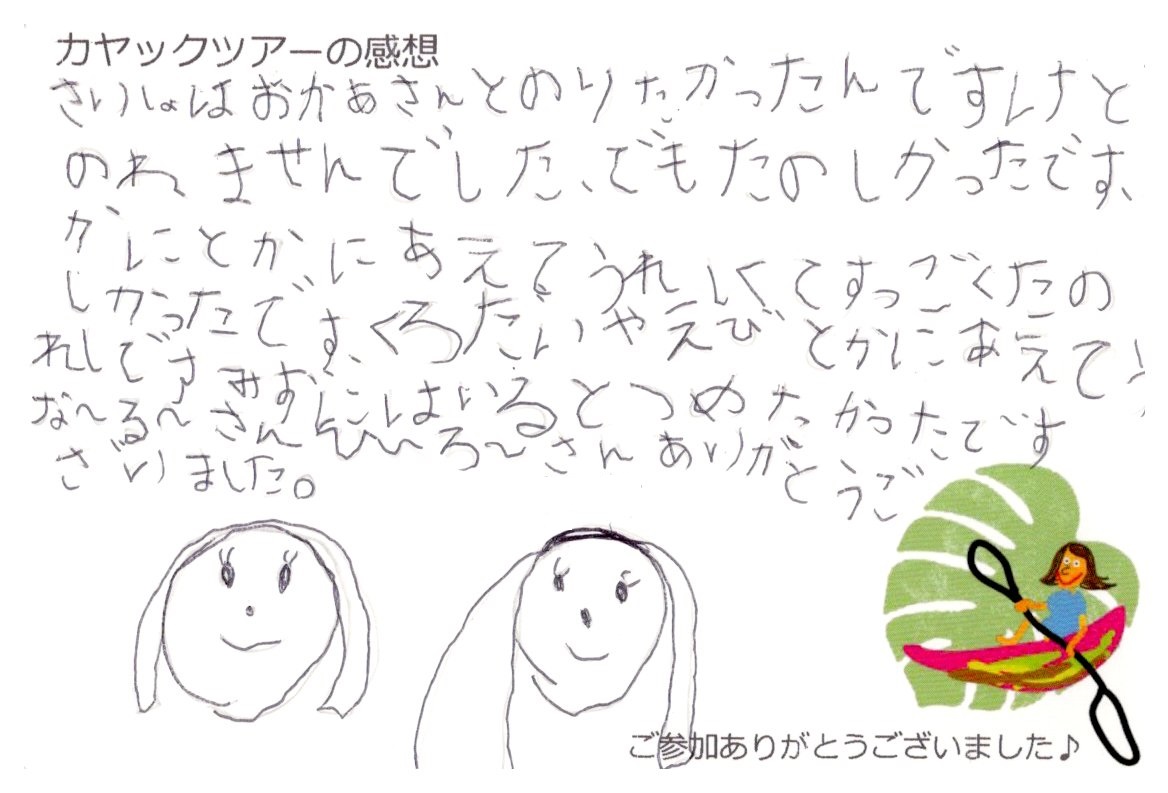 カヤックツアーの感想
さいしょはおかあさんとのりたかったんですけど
のれませんでした、でもたのしかったです、
かにとかにあえてうれしくてすっごくたの
しかったです、くろだいやえびとかにあえて!
れしです みずにはいるとつめたかったです
な〜る〜さんひ〜ろ〜さんありがとうご
ざいました。
ご参加ありがとうございました♪